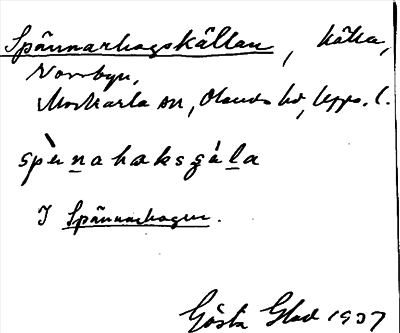 Spännarhagskällan, källa,
Norrbyn,
Morkarla sn, Olands hd, Upps. l.
spènahaksgála
I Spännarhagen.
Gösta Glad 1937